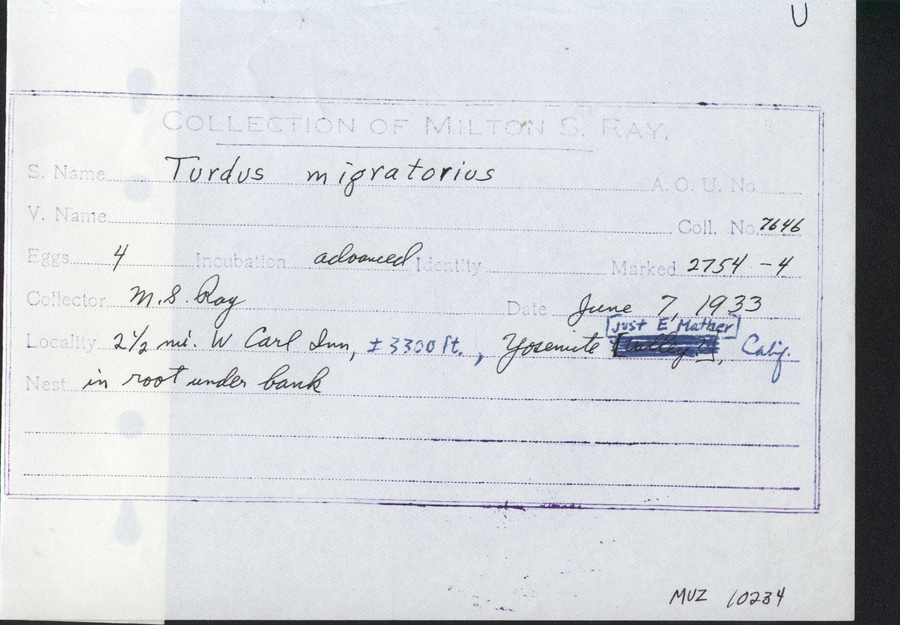 U
COLLECTION OF MILTON S. RAY.
S. Name Turdus migratorius A. O. U. No.
V. Name Coll. No. 7646
Eggs 4 Incubation advanced Identity Marked 2754 - 4
Collector M. S. Ray Date June 7, 1933
[just E Mather]
Locality 2½ mi. W Carl Inn, ± 3300 ft., Yosemite [Valley?], Calif.
Nest in root under bank
MVZ 10234